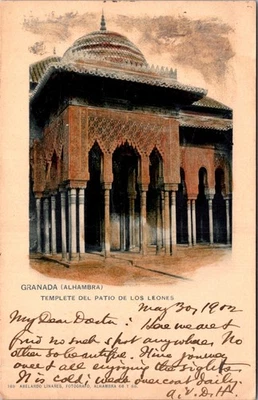 GRANADA (ALHAMBRA)
TEMPLETE DEL PATIO DE LOS LEONES
May 30, 1902
My Dear Doctor: Here we are &
find no such spot anywhere. No
other so beautiful. Fine journey
over & all enjoying the sights
It is cold; need overcoat daily.
A. V. D. H.
ABELARDO LINARES, FOTÓGRAFO, ALHAMBRA